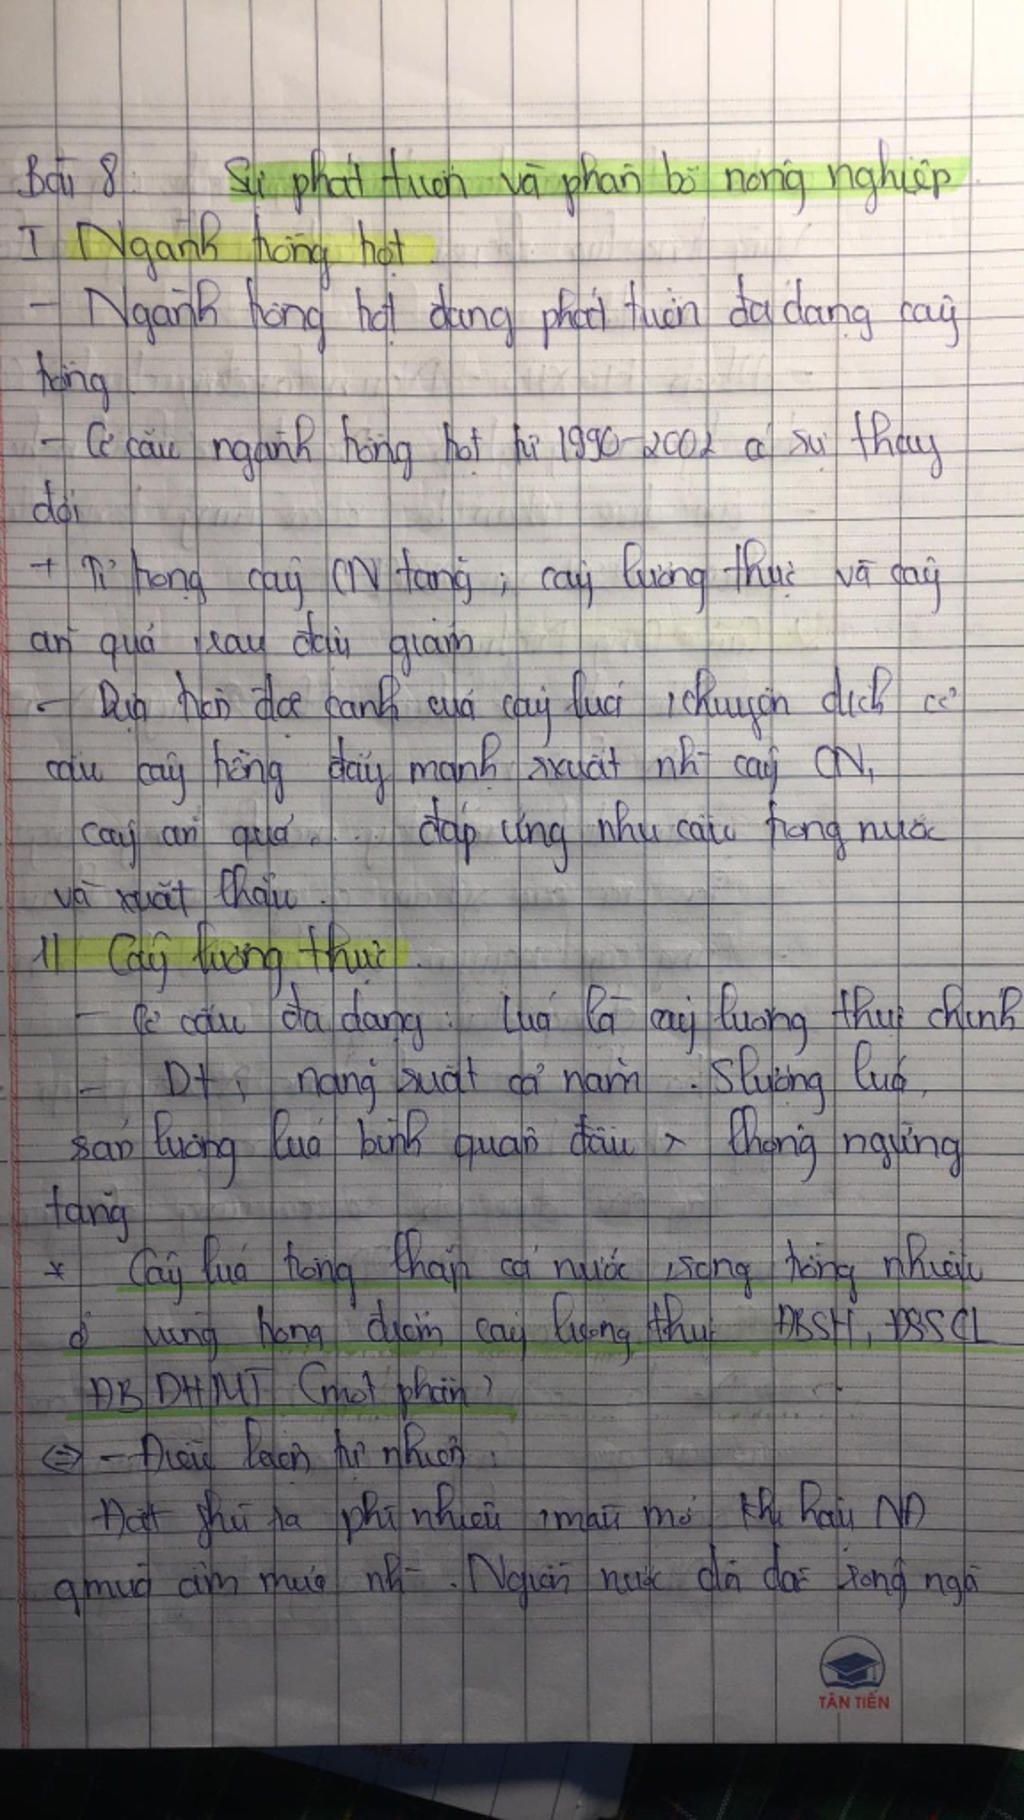 Bài 8 Sự phát triển và phân bố nông nghiệp
I Ngành trồng trọt
- Ngành trồng trọt đang phát triển đa dạng cây
trồng
- Cơ cấu ngành trồng trọt từ 1990-2002 có sự thay
đổi
+ Tỉ trọng cây CN tăng; cây lương thực và cây
ăn quả, rau đậu giảm
- Dựa thế độc canh của cây lúa, chuyển dịch cơ
cấu cây trồng đẩy mạnh sxuất nh- cây CN,
cây ăn quả... đáp ứng nhu cầu trong nước
và xuất khẩu.
1) Cây lương thực.
- Cơ cấu đa dạng: lúa là cây lương thực chính
- Dt, năng suất cả năm. Slượng lúa,
sản lượng lúa bình quân đầu > không ngừng
tăng
* Cây lúa trồng khắp cả nước, song trồng nhiều
ở vùng trọng điểm cây lương thực ĐBSH, ĐBSCL
ĐB DHMT (một phần)
⇔ - Điều kiện tự nhiên.
Đất phù sa phì nhiêu, màu mỡ, khí hậu NĐ
gmùa ẩm mưa nh-. Nguồn nước dồi dào sông ngò
TÂN TIẾN